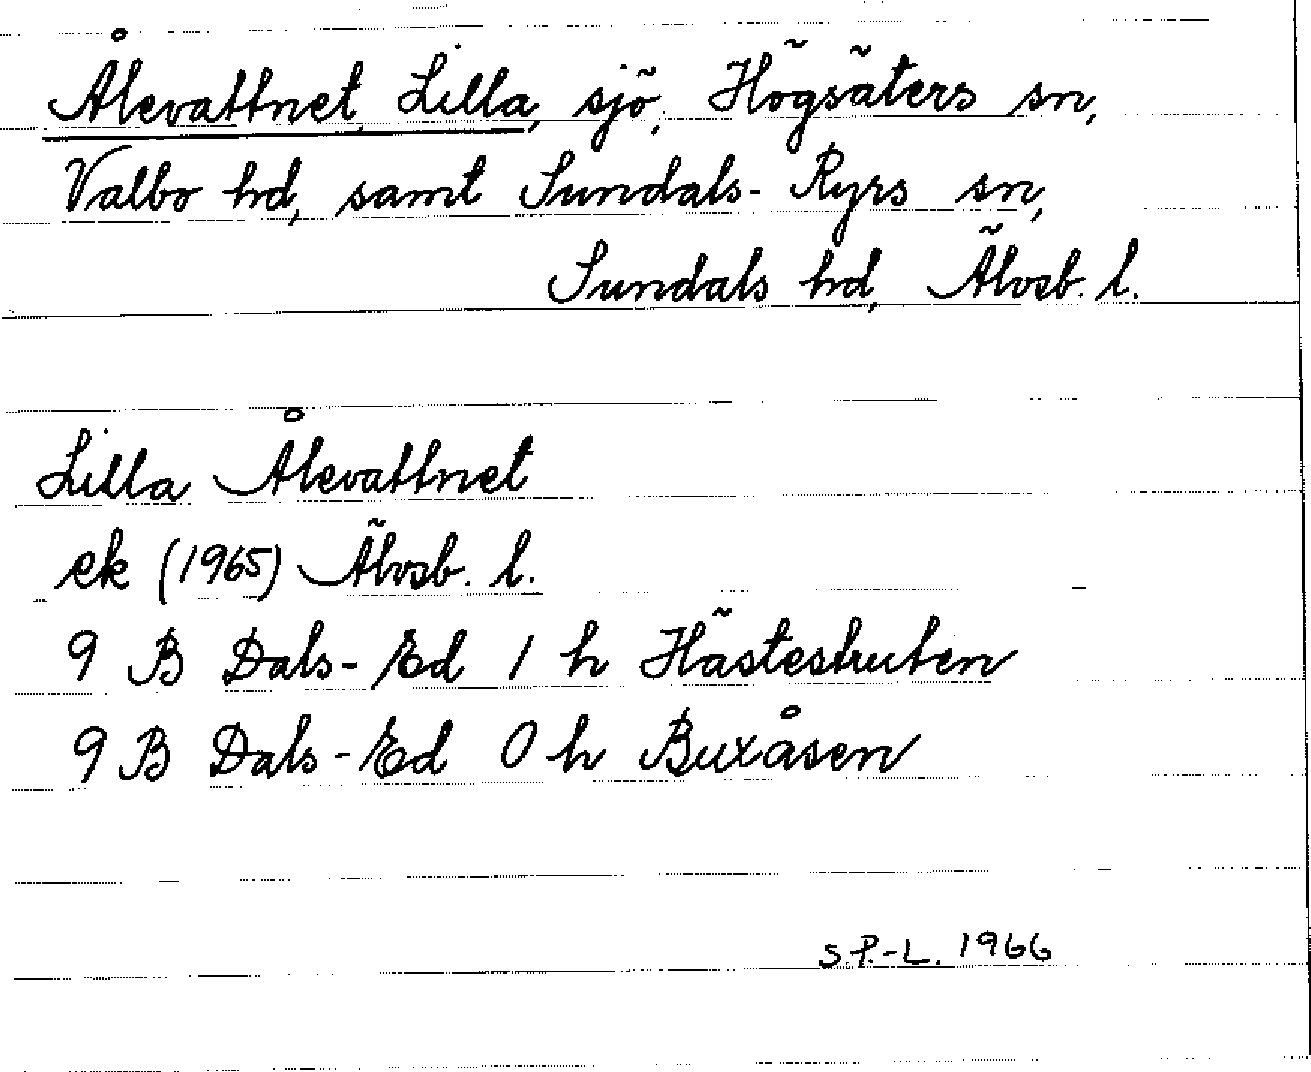 Ålevattnet, Lilla, sjö, Högsäters sn,
Valbo hd, samt Sundals-Ryrs sn,
Sundals hd, Älvsb. l.
Lilla Ålevattnet
ek (1965) Älvsb. l.
9 B Dals-Ed 1 h Hästestruten
9 B Dals-Ed 0 h Buxåsen
S.P.-L. 1966